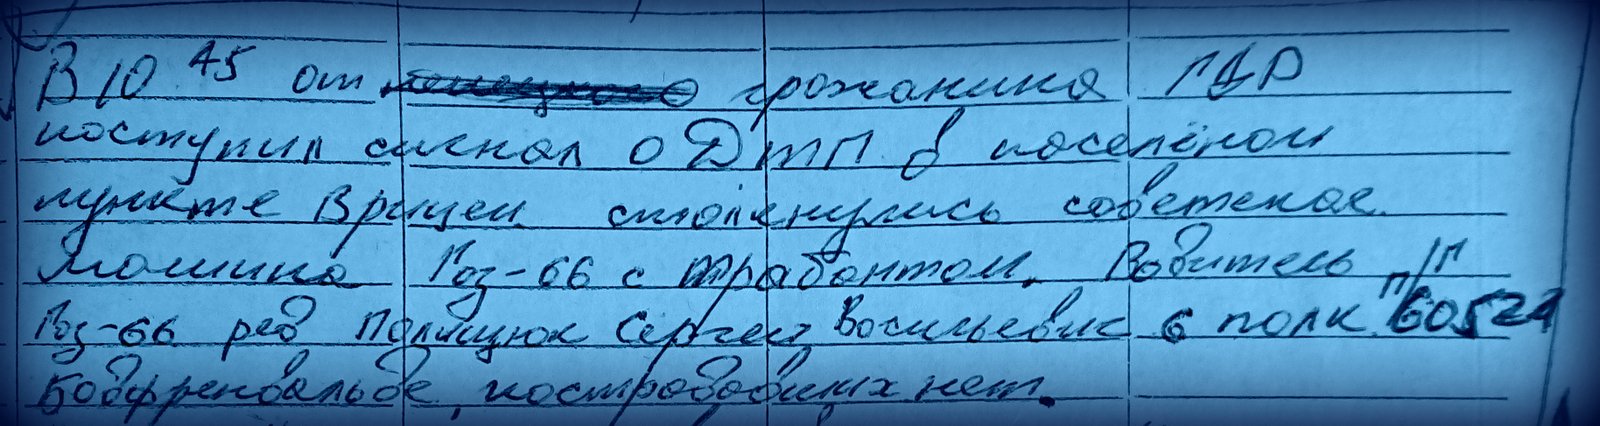 В 10 45 от немецкого гражданина ГДР
поступил сигнал о ДТП в населёном
пункте Врицен столкнулись советская
машина Газ-66 с трабантом. Водитель
Газ-66 ряд Полищук Сергей Васильевич 6 полк п/п 60521
Бадфрендвальде, пострадавших нет.